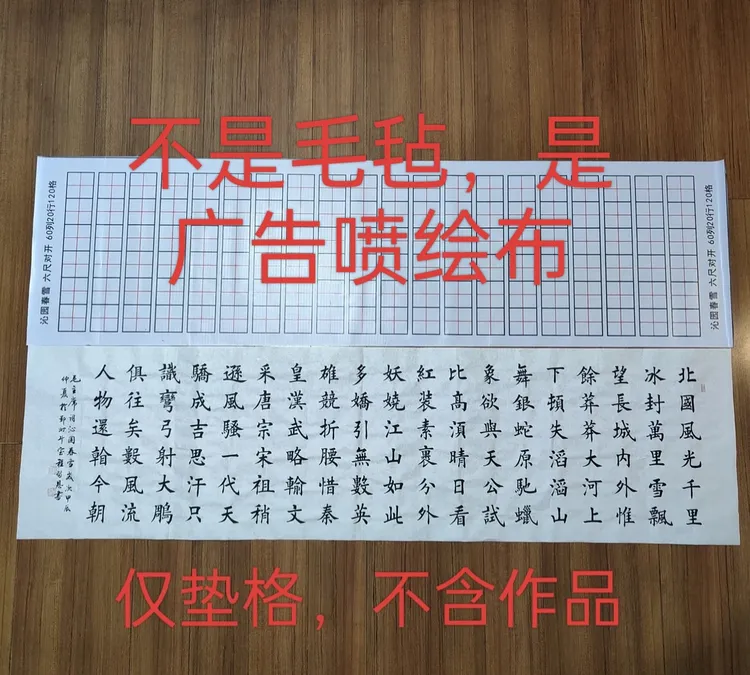 不是毛毡，是
广告喷绘布
沁园春雪 六尺对开 60列20行120格
沁园春雪 六尺对开 60列20行120格
北國風光千里
冰封萬里雪飄
望長城內外惟
餘莽莽大河上
下頓失滔滔山
舞銀蛇原馳蠟
象欲與天公試
比高須晴日看
紅裝素裹分外
妖嬈江山如此
多嬌引無數英
雄競折腰惜秦
皇漢武略輸文
采唐宗宋祖稍
遜風騷一代天
驕成吉思汗只
識彎弓射大鵰
俱往矣數風流
人物還看今朝
毛主席詞沁園春雪歲次甲辰
仲夏於鄭州
仅垫格，不含作品